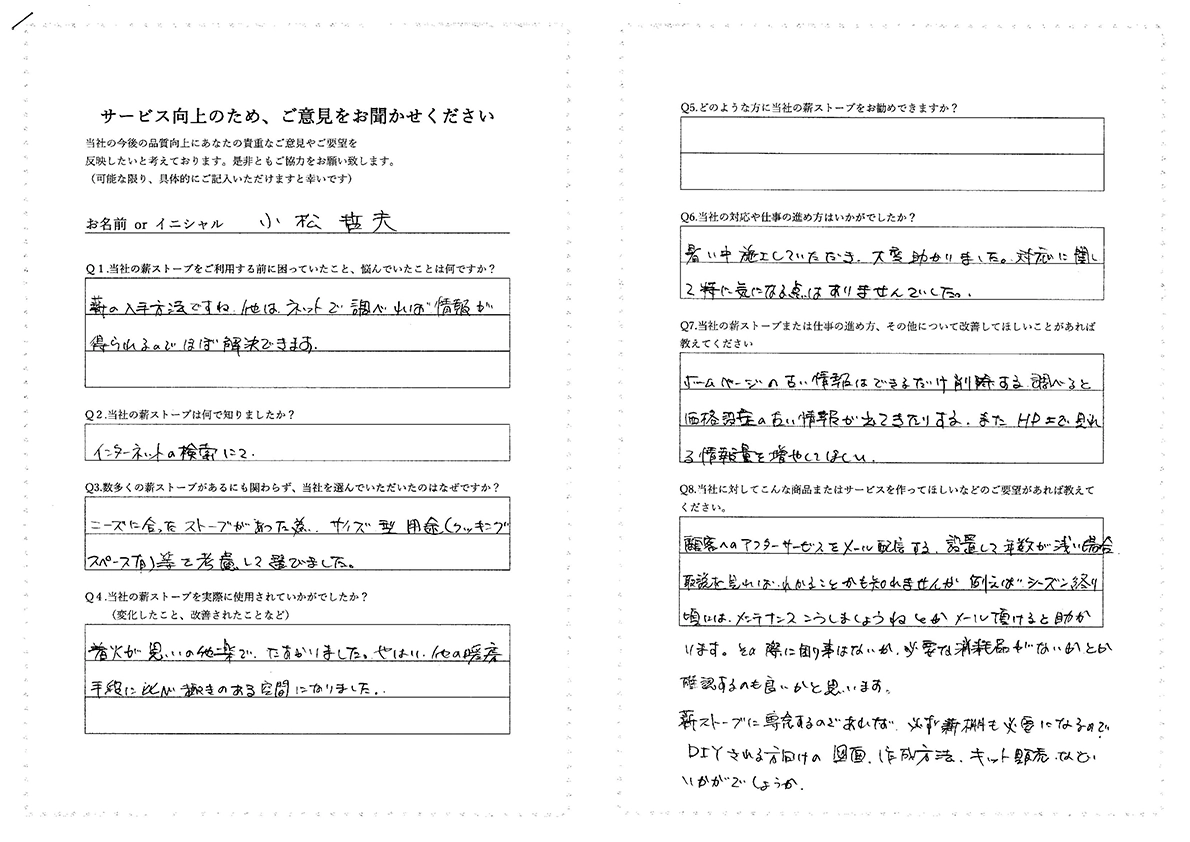 サービス向上のため、ご意見をお聞かせください
当社の今後の品質向上にあなたの貴重なご意見やご要望を
反映したいと考えております。是非ともご協力をお願い致します。
（可能な限り、具体的にご記入いただけますと幸いです）
お名前 or イニシャル 小松 哲夫
Q1.当社の薪ストーブをご利用する前に困っていたこと、悩んでいたことは何ですか？
薪の入手方法ですね。他は、ネットで調べれば情報が
得られるのでほぼ解決できます。
Q2.当社の薪ストーブは何で知りましたか？
インターネットの検索にて。
Q3.数多くの薪ストーブがあるにも関わらず、当社を選んでいただいたのはなぜですか？
ニーズに合ったストーブがあった為。サイズ 型 用途（クッキング
スペース有）等で考慮して選びました。
Q4.当社の薪ストーブを実際に使用されていかがでしたか？
（変化したこと、改善されたことなど）
着火が思いの他楽で、たすかりました。やはり、他の暖房
手段に比べ趣きのある空間になりました。
Q5.どのような方に当社の薪ストーブをお勧めできますか？
Q6.当社の対応や仕事の進め方はいかがでしたか？
暑い中施工していただき、大変助かりました。対応に関し
て特に気になる点はありませんでした。
Q7.当社の薪ストーブまたは仕事の進め方、その他について改善してほしいことがあれば
教えてください
ホームページの古い情報はできるだけ削除する。調べると
価格設定の古い情報が出てきたりする。また HP上で見れ
る情報量を増やしてほしい。
Q8.当社に対してこんな商品またはサービスを作ってほしいなどのご要望があれば教えて
ください。
顧客へのアフターサービスをメール配信する。設置して年数が浅い場合、
取説を見ればわかることかも知れませんが 例えばシーズン終り
頃には、メンテナンスこうしましょうねとかメール頂けると助か
ります。その際に困り事はないか、必要な消耗品がないかとか
確認するのも良いかと思います。
薪ストーブに専念するのであれば、必ず薪棚も必要になるので
DIYされる方向けの 図面、作成方法、キット販売などい
いかがでしょうか。